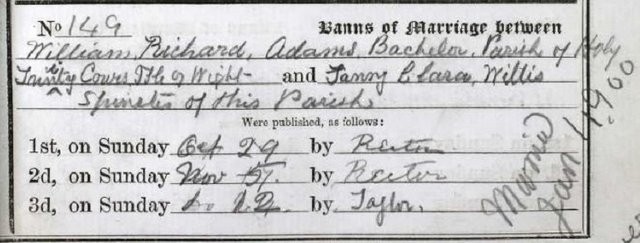 No 149 Banns of Marriage between
William Richard, Adams, Bachelor, Parish of Holy
Trinity Cowes Isle of Wight and Fanny Clara, Willis
Spinster of this Parish
Were published, as follows:
1st, on Sunday Oct 29 by Rector
2d, on Sunday Nov 5 by Rector
3d, on Sunday Do 12 by Taylor.
Married
Jan 1900